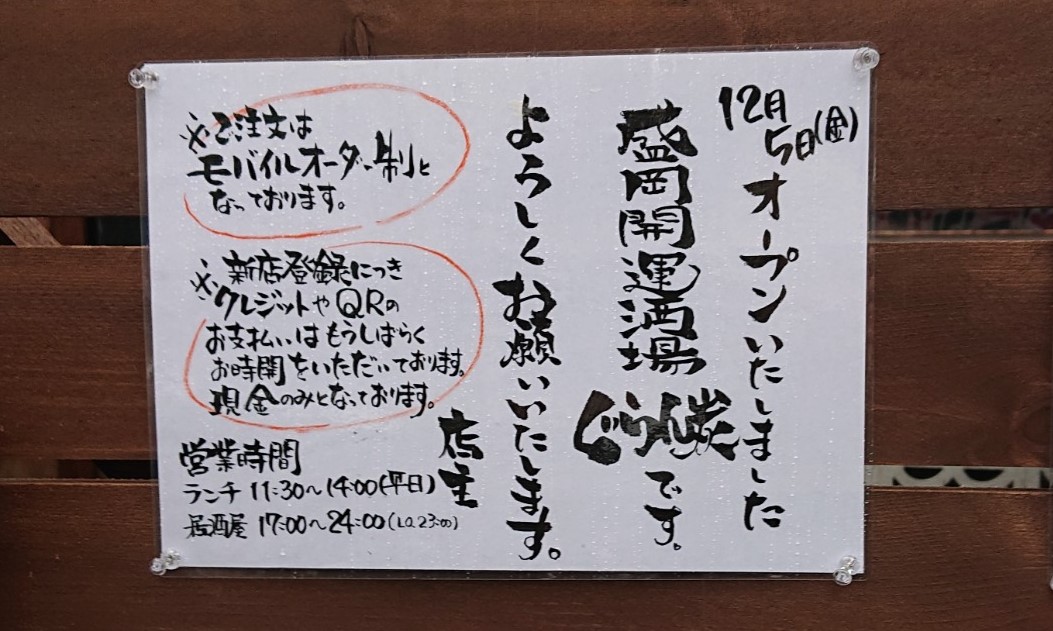 12月5日(金)
オープンいたしました
盛岡開運酒場
ぐらん炭です。
よろしくお願いいたします。
店主
※ご注文は
モバイルオーダー制と
なっております。
※新店登録につき
クレジットやQRの
お支払いはもうしばらく
お時間をいただいております。
現金のみとなっております。
営業時間
ランチ 11:30〜14:00(平日)
居酒屋 17:00〜24:00(L.O.23:00)